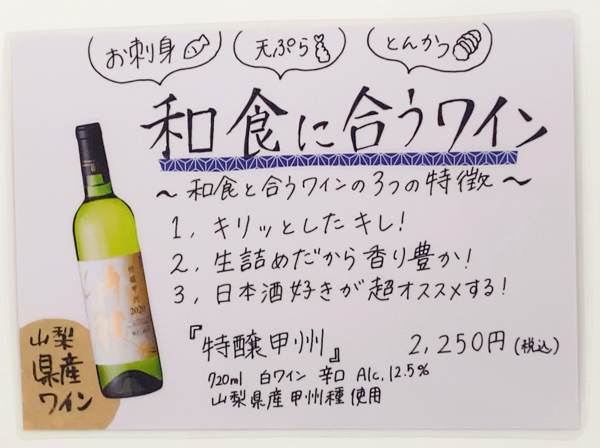 お刺身
天ぷら
とんかつ
和食に合うワイン
〜和食と合うワインの3つの特徴〜
1, キリッとしたキレ!
2, 生詰めだから香り豊か!
3, 日本酒好きが超オススメする!
『特醸甲州』 2,250円(税込)
720ml 白ワイン 辛口 Alc, 12.5%
山梨県産甲州種使用
特醸甲州
2020
山梨
県産
ワイン